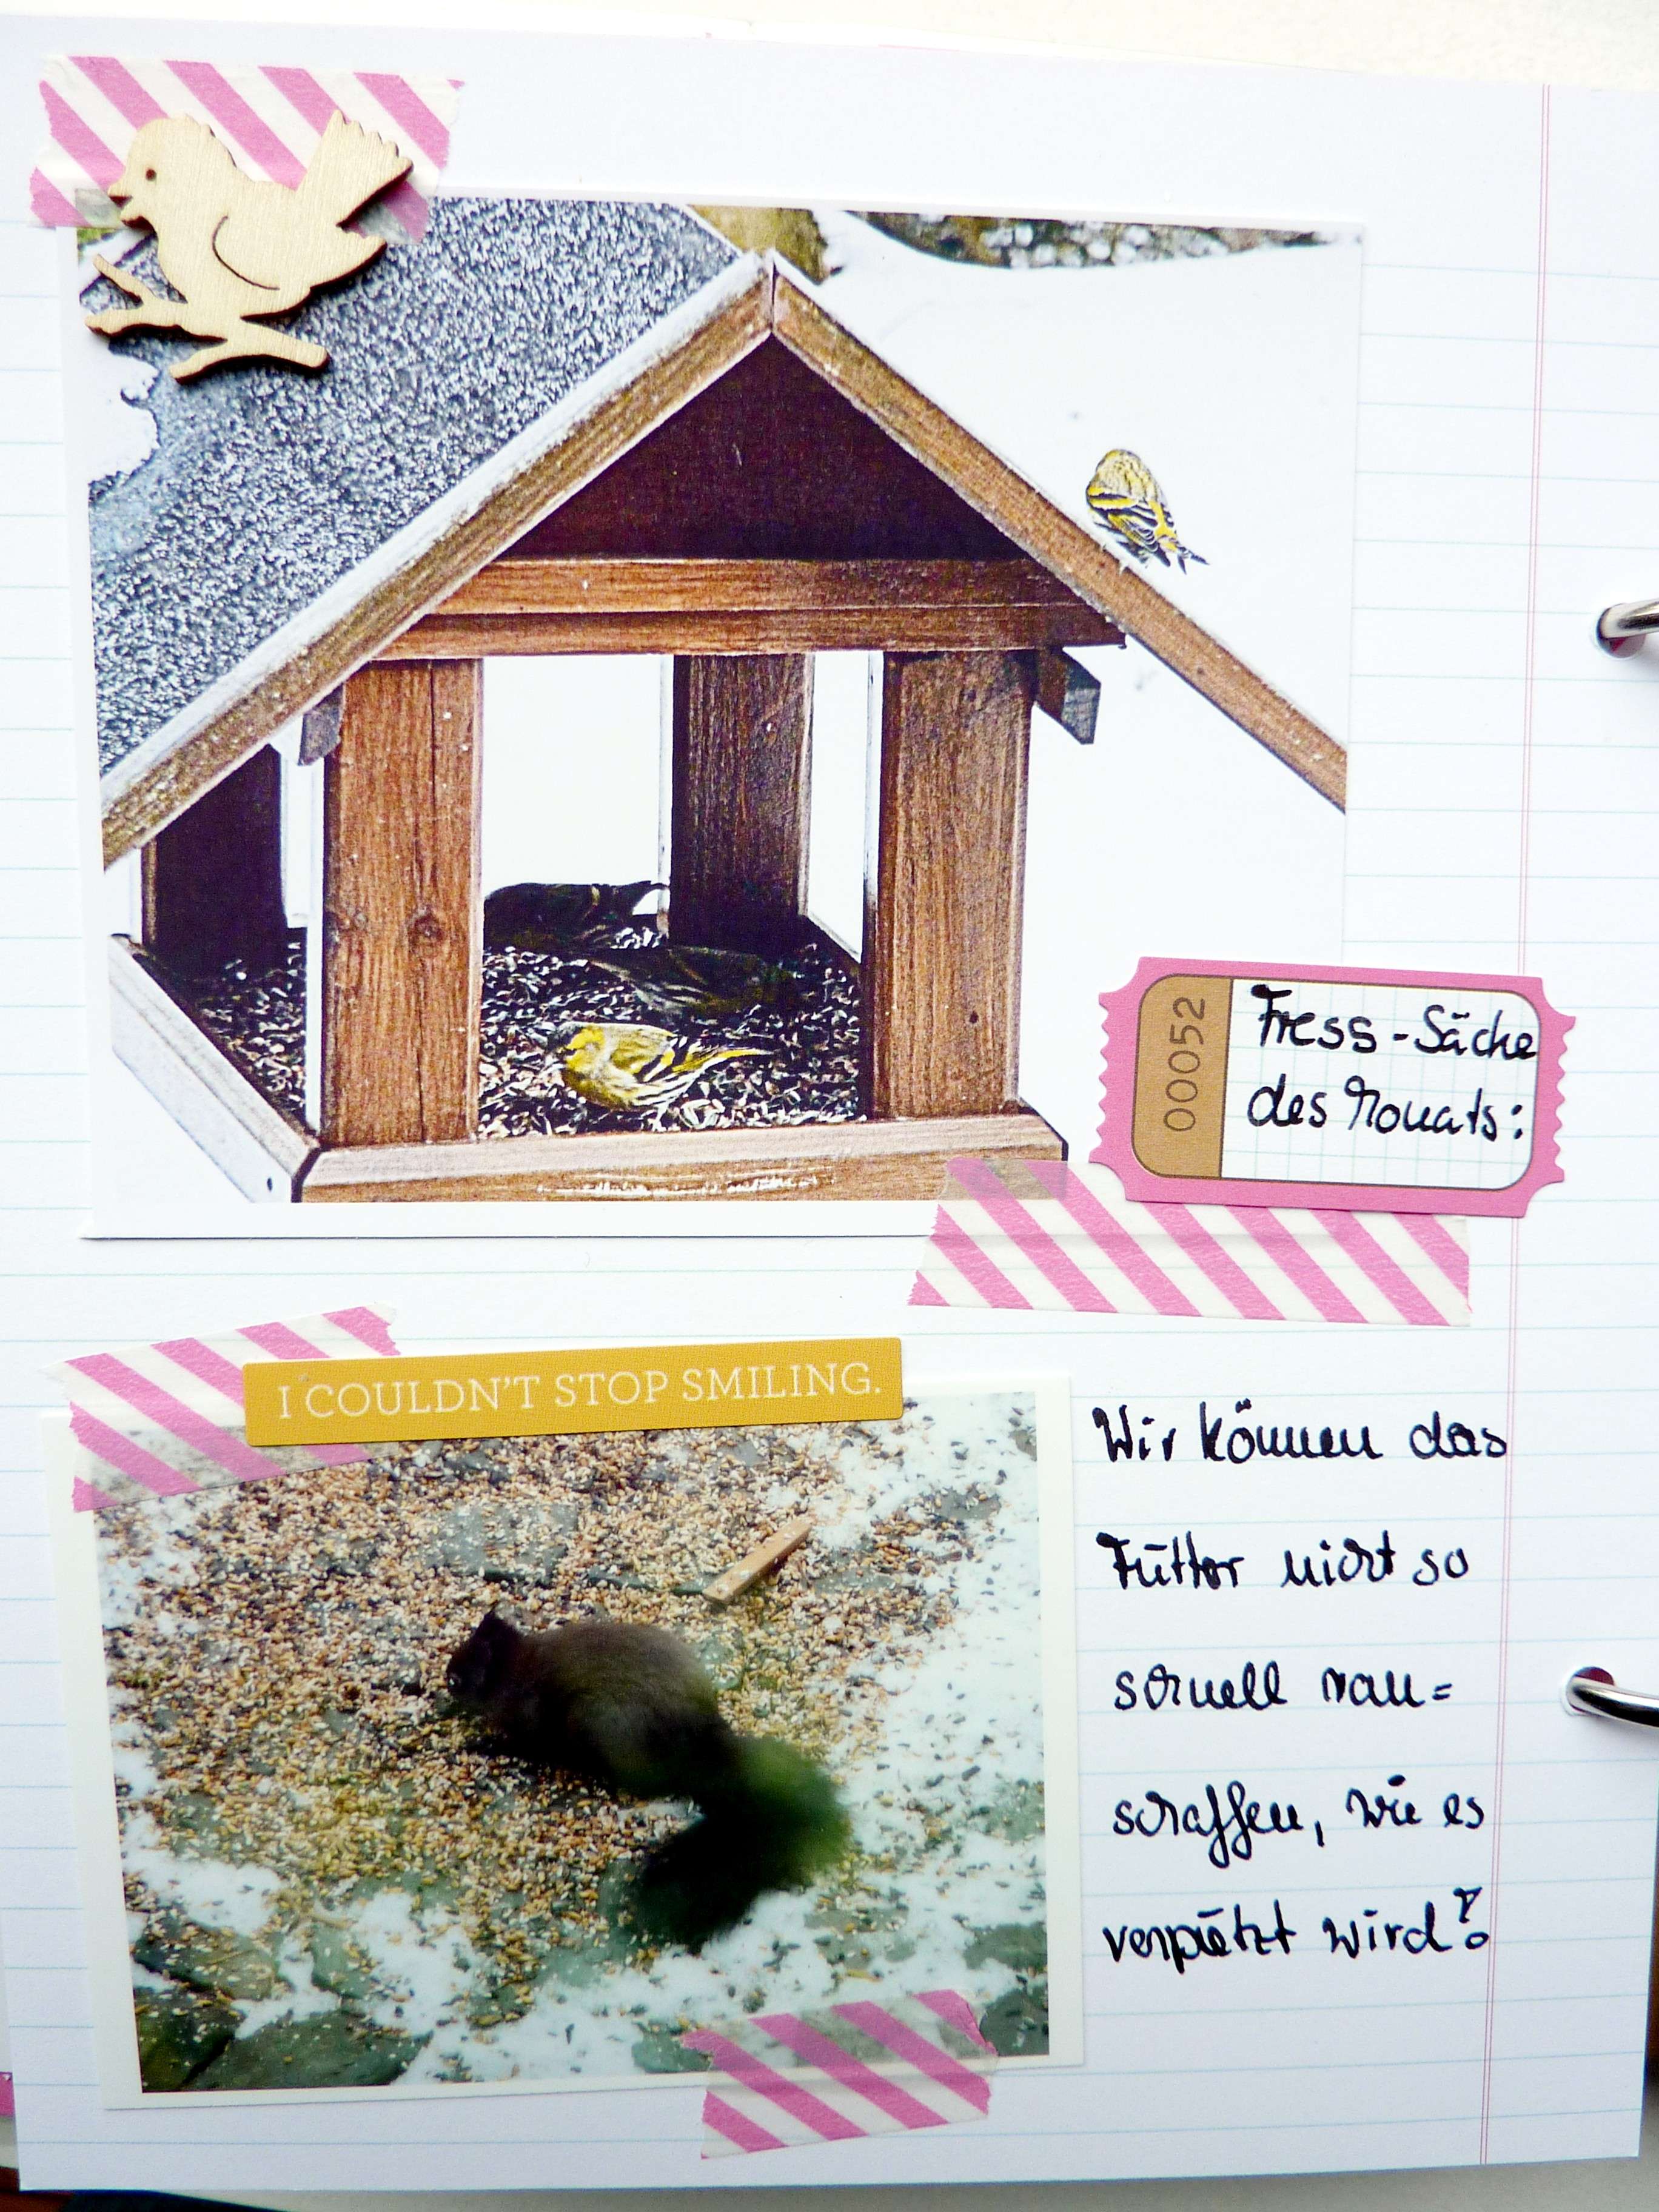 00052
Fress-Säcke
des Monats:
I COULDN'T STOP SMILING.
Wir können das
Futter nicht so
schnell ran=
schaffen, wie es
verputzt wird!